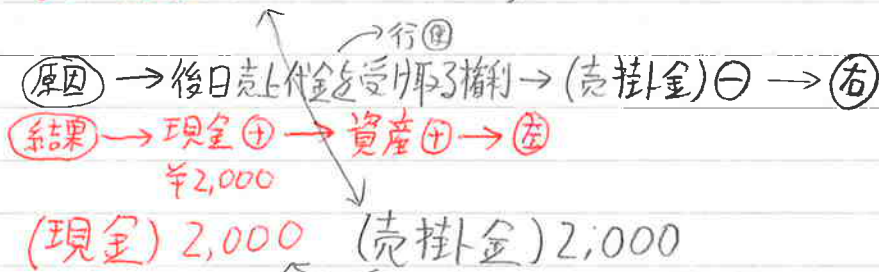 行使
原因→後日売上代金を受け取る権利→(売掛金)⊖→右
結果→現金⊕→資産⊕→左
¥2,000
(現金) 2,000 (売掛金) 2,000